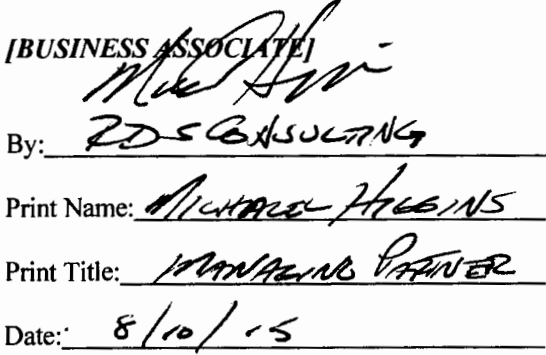 [BUSINESS ASSOCIATE]
By: RDS CONSULTING
Print Name: MICHAEL HIGGINS
Print Title: MANAGING PARTNER
Date: 8/10/15